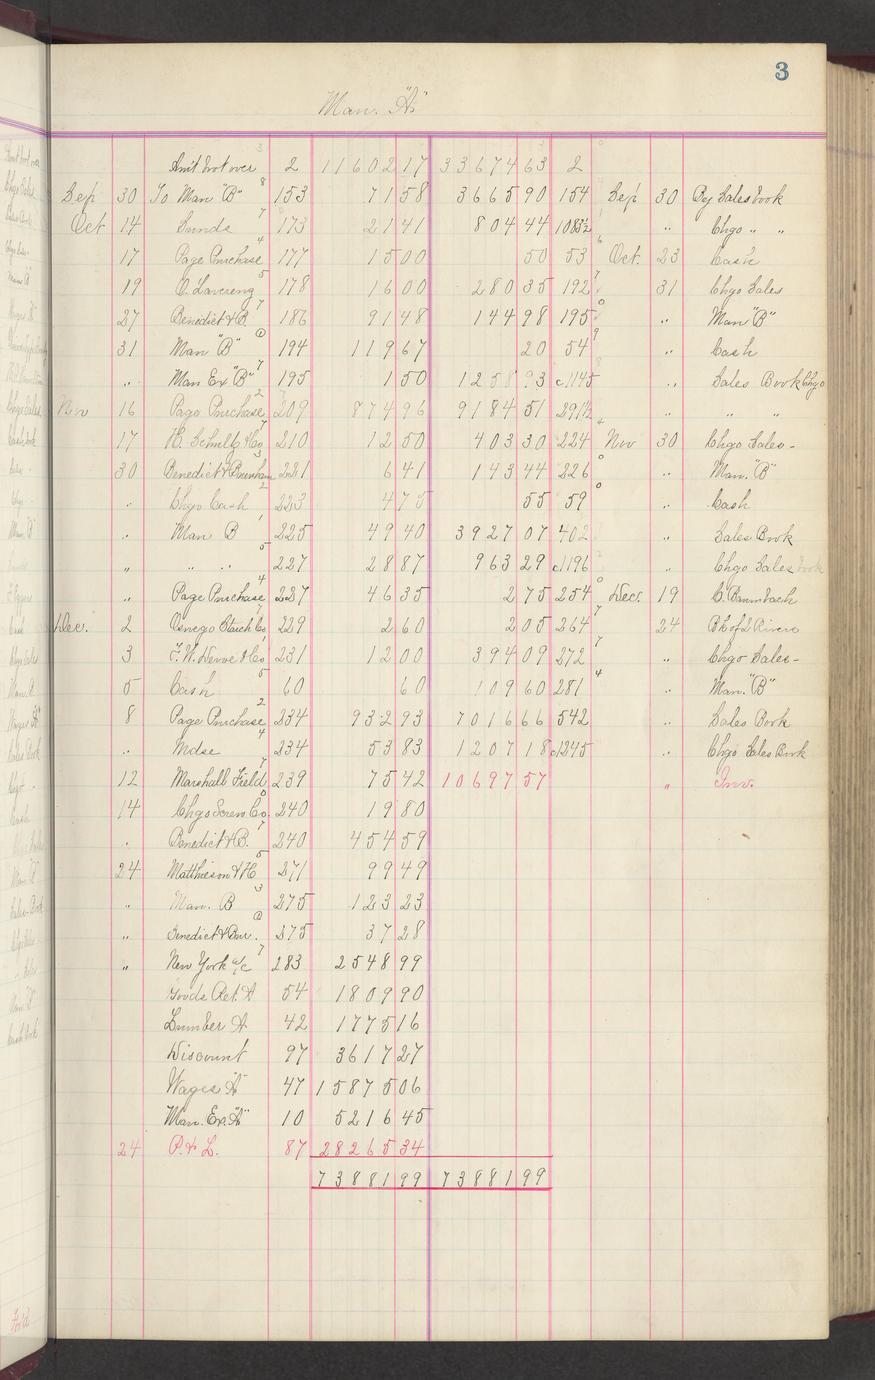 3
Man. "A"
Am't brot over 2 11602 17 33674 63 2
Sep 30 To Man "B" 153 71 58 3665 90 154 Sep 30 By Salesbook
Oct 14 Sunds 173 21 41 804 44 1083½ " Chgo " "
17 Page Purchase 177 15 00 50 53 Oct. 23 Cash
19 178 16 00 280 35 192 31 Chgo Sales
27 Benedict & B. 186 91 48 144 98 195 " Man "B"
31 Man "B" 194 119 67 20 54 " Cash
" Man Ex "B" 195 1 50 1258 93 c1145 " Sales Book Chgo
Nov 16 Page Purchase 209 874 96 9184 51 291½ " " "
17 H. Schultz & Co 210 12 50 403 30 224 Nov 30 Chgo Sales -
30 Benedict & Burnham 221 6 41 143 44 226 " Man. "B"
" Chgo Cash 223 4 75 55 59 " Cash
" Man B 225 49 40 3927 07 402 " Sales Book
" " " 227 28 87 963 29 c1196 " Chgo Sales Book
" Page Purchase 227 46 35 2 75 254 Dec. 19 C. Baumbach
Dec. 2 Oswego Starch Co 229 2 60 2 05 264 24 Bk of 2 Rivers
3 231 12 00 394 09 272 " Chgo Sales -
5 Cash 60 60 109 60 281 " Man. "B"
8 Page Purchase 234 932 93 7016 66 542 " Sales Book
" Mdse 234 53 83 1207 18 c1245 " Chgo Sales Book
12 Marshall Field 239 75 42 10697 57 " Inv.
14 Chgo Screw Co. 240 19 80
" Benedict & B. 240 454 59
24 Matthieson & H 271 99 49
" Man. B 275 123 23
" Benedict & Bur. 275 37 28
" New York a/c 283 2548 99
Goods Ret. A 54 1809 90
Lumber A 42 1775 16
Discount 97 3617 27
Wages "A" 47 15875 06
Man. Ex. "A" 10 5216 45
24 P. & L. 87 28265 34
73881 99 73881 99